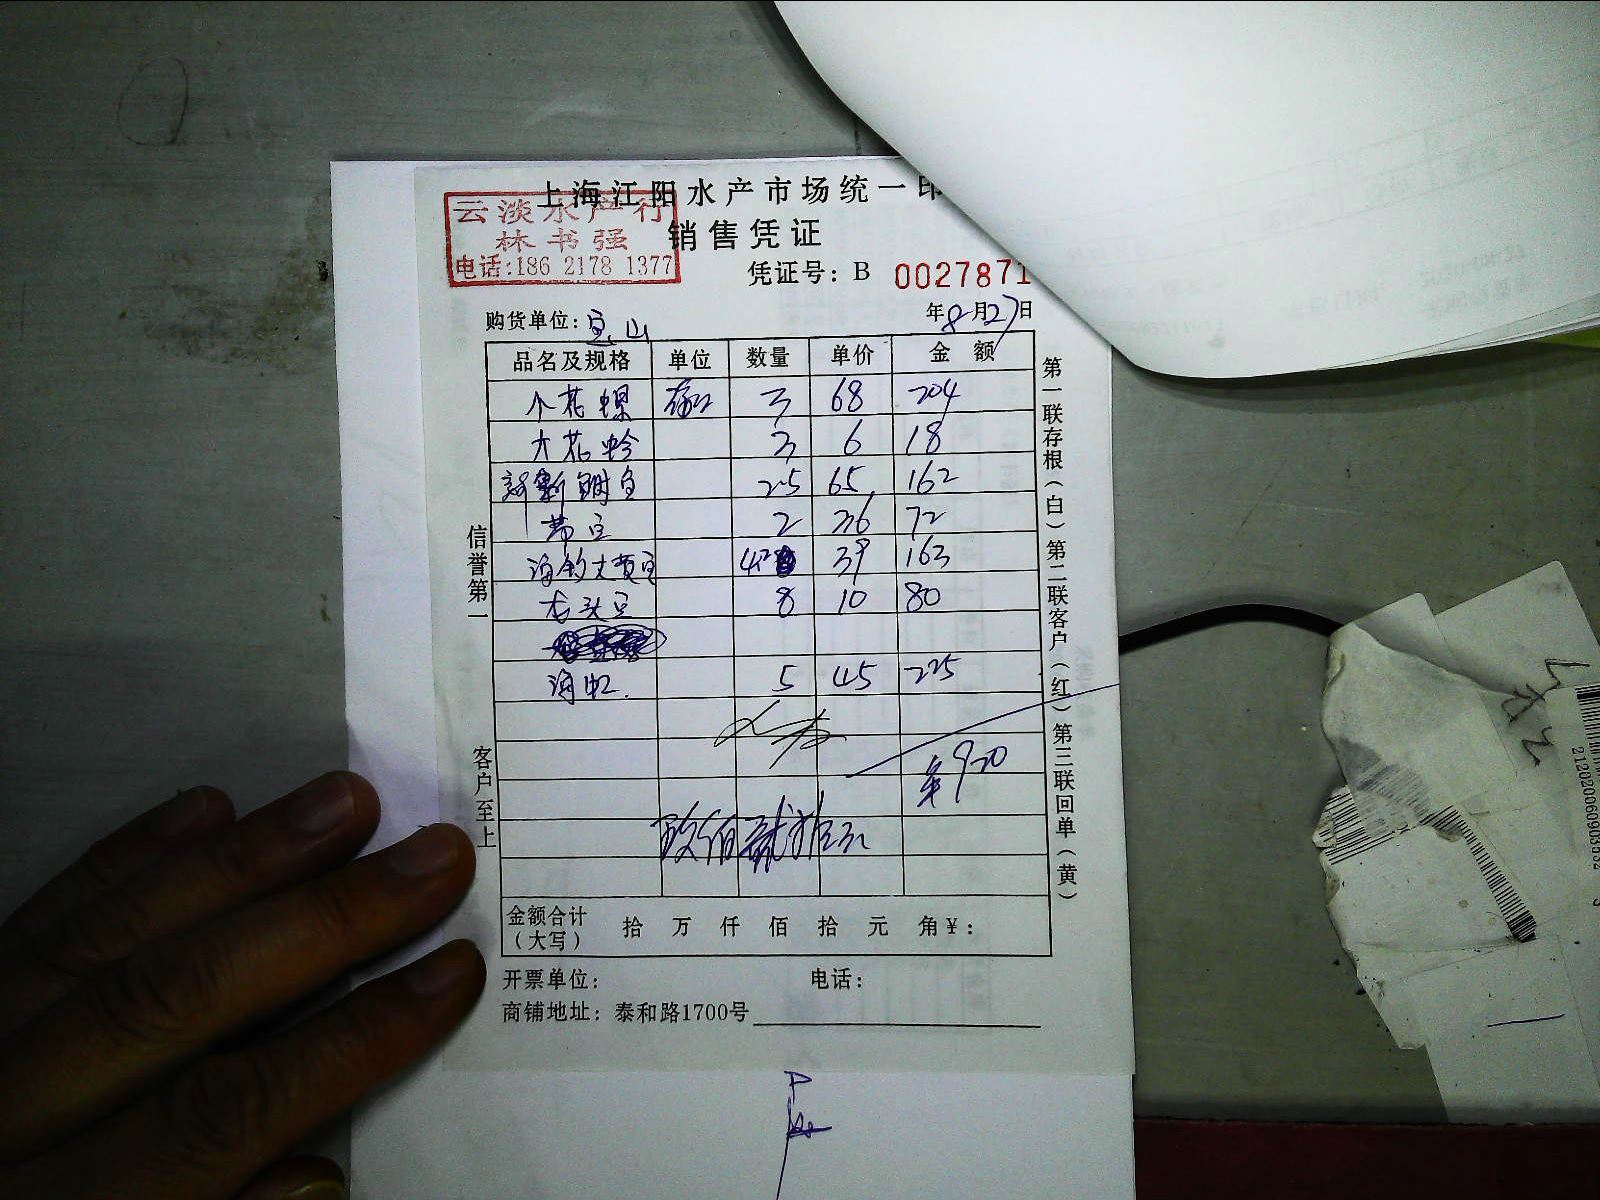 上海江阳水产市场统一印
云淡水产行
林书强
电话:186 2178 1377
销售凭证
凭证号: B 0027871
购货单位: 宝山
年8月27日
品名及规格 单位 数量 单价 金 额
个花螺 3 68 204
大花蛤 3 6 18
新鲜 2.5 65 162
带鱼 2 36 72
海钓大黄鱼 42 39 163
龙头鱼 8 10 80
海虹 5 45 225
920
金额合计(大写) 拾 万 仟 佰 拾 元 角 ¥:
开票单位: 电话:
商铺地址: 泰和路1700号
信誉第一
客户至上
第一联存根(白) 第二联客户(红) 第三联回单(黄)
2120200609083532